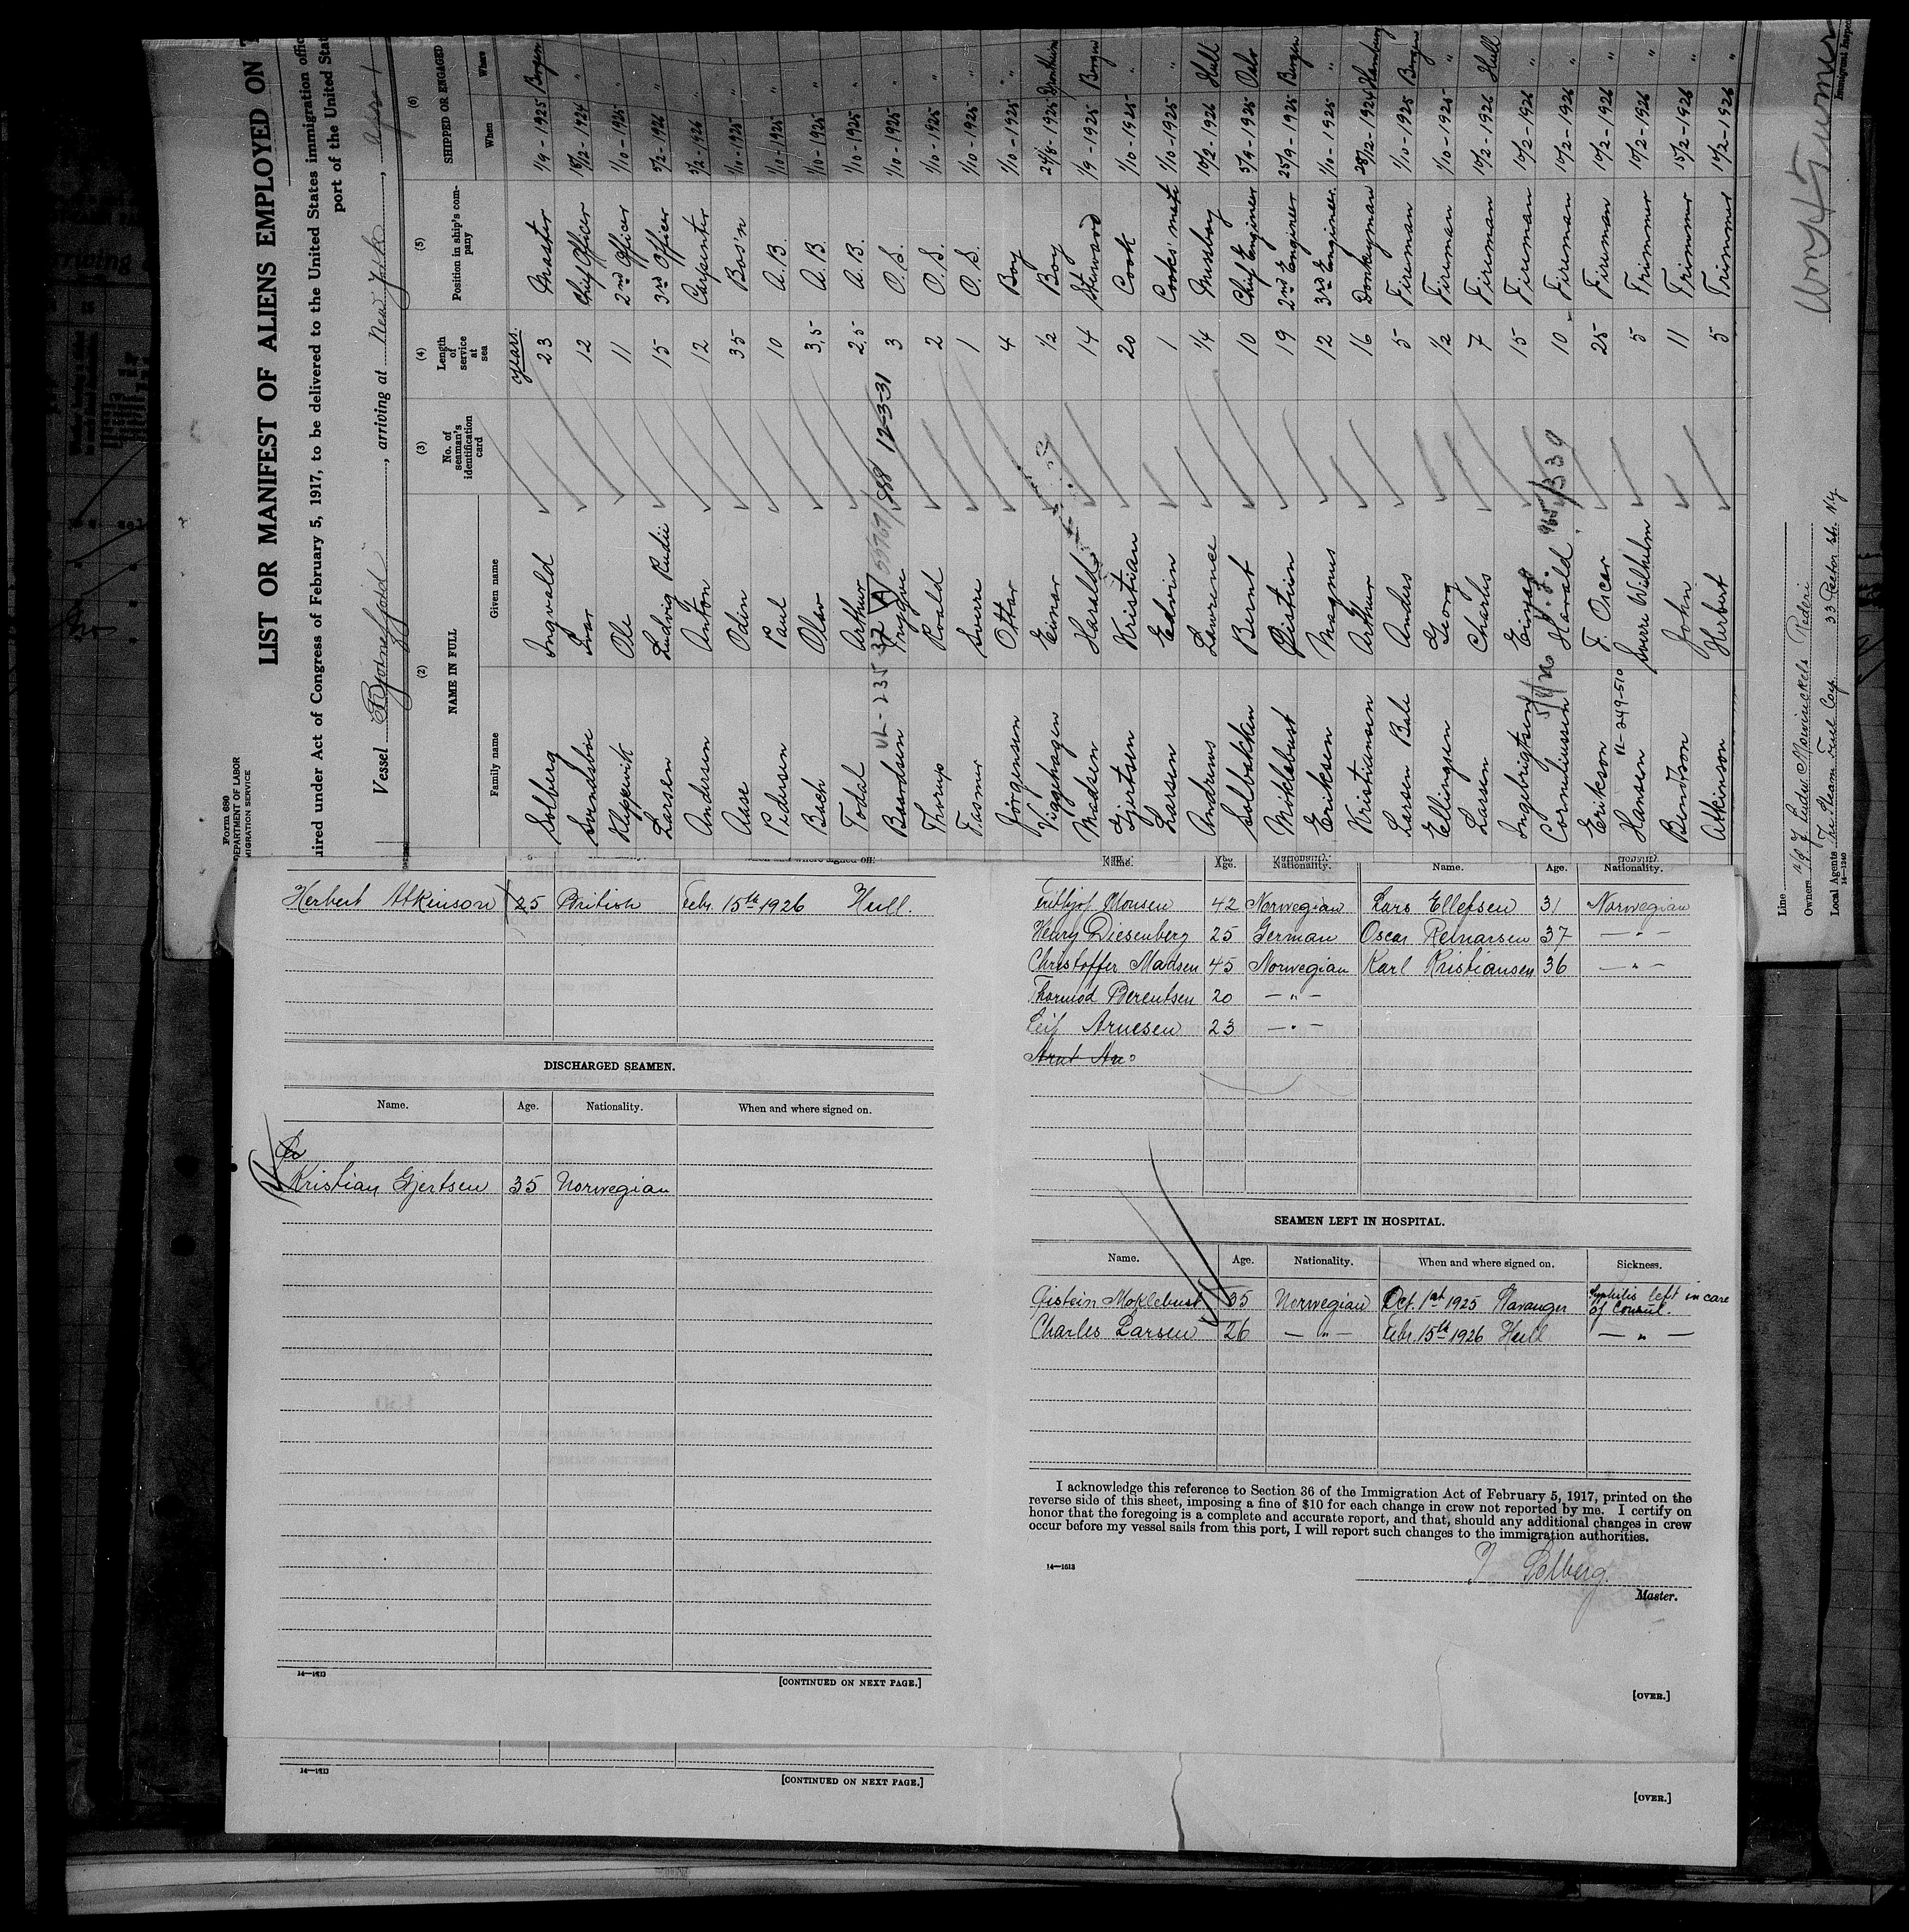 Form 680
DEPARTMENT OF LABOR
MIGRATION SERVICE
LIST OR MANIFEST OF ALIENS EMPLOYED ON
uired under Act of Congress of February 5, 1917, to be delivered to the United States immigration offic
port of the United Stat
Vessel Bjørnefjord, arriving at New York,
(2) (3) (4) (5) (6)
NAME IN FULL No. of seaman's identification card Length of service at sea Position in ship's company SHIPPED OR ENGAGED
Family name Given name When Where
years
Solberg Ingvald 23 Master 1/9-1925 Bergen
Svendsbøe Ivar 12 Chief Officer 18/12-1924 "
Kleppervik Ole 11 2nd Officer 1/10-1925 "
Larsen Ludvig Rudii 15 3rd Officer 5/2-1926 "
Andersen Anton 12 Carpenter 3/2-1926 "
Aase Odin 35 Bos'n 1/10-1925 "
Pedersen Paul 10 A.B. 1/10-1925 "
Bach Olav 3,5 A.B. 1/10-1925 "
Todal Arthur 2,5 A.B. 1/10-1925 "
VL-235-37 12-3-31
Berdsen Trygve 3 O.S. 1/10-1925 "
Thorup Roald 2 O.S. 1/10-1925 "
Tasmer Sverre 1 O.S. 1/10-1925 "
Jørgensen Ottar 4 Boy 1/10-1925 "
Viggehagen Einar 1/2 Boy 24/8-1925 Trondheim
Madsen Harald 14 Steward 1/9-1925 Bergen
Gjertsen Kristian 20 Cook 1/10-1925 "
Larsen Edvin 1 Cooks' mate 1/10-1925 "
Andrews Lawrence 1/4 Messboy 10/2-1926 Hull
Solbakken Bernt 10 Chief Engineer 5/9-1925 Oslo
Miklebust Øistein 19 2nd Engineer 25/9-1925 Bergen
Eriksen Magnus 12 3rd Engineer 1/10-1925 "
Kristiansen Arthur 16 Donkeyman 28/12-1924 Hamburg
Larsen Bale Anders 5 Fireman 1/10-1925 Bergen
Ellingsen Georg 1/2 Fireman 1/10-1925 "
Larsen Charles 7 Fireman 10/2-1926 Hull
Ingebrigtsen Einar 15 Fireman 10/2-1926 "
Corneliussen Harald 10 Fireman 10/2-1926 "
Erikson F. Oscar 25 Fireman 10/2-1926 "
VL-249-510
Hansen Sverre Wilhelm 5 Trimmer 10/2-1926 "
Bendson John 11 Trimmer 15/2-1926 "
Atkinson Herbert 5 Trimmer 10/2-1926 "
Line
Owners
Local Agents 33 Rector st. Ny
14—1240
Immigrant Inspec
Herbert Atkinson 25 British Febr. 15th 1926 Hull.
DISCHARGED SEAMEN.
Name. Age. Nationality. When and where signed on.
Kristian Gjertsen 35 Norwegian
14—1613
[CONTINUED ON NEXT PAGE.]
14—1613
[CONTINUED ON NEXT PAGE.]
Name. Age. Nationality. Name. Age. Nationality.
Frithjof Monsen 42 Norwegian Lars Ellefsen 31 Norwegian
Henry Diesenberg 25 German Oscar Reinarsen 37 — " —
Christoffer Madsen 45 Norwegian Karl Kristiansen 36 — " —
Thormod Berentsen 20 — " —
Leif Arnesen 23 — " —
SEAMEN LEFT IN HOSPITAL.
Name. Age. Nationality. When and where signed on. Sickness.
Øistein Moklebust 35 Norwegian Oct. 1st 1925 Stavanger Syphilis left in care of Consul.
Charles Larsen 26 — " — Febr. 15th 1926 Hull — " —
I acknowledge this reference to Section 36 of the Immigration Act of February 5, 1917, printed on the
reverse side of this sheet, imposing a fine of $10 for each change in crew not reported by me. I certify on
honor that the foregoing is a complete and accurate report, and that, should any additional changes in crew
occur before my vessel sails from this port, I will report such changes to the immigration authorities.
14—1613
I Solberg.
Master.
[OVER.]
[OVER.]